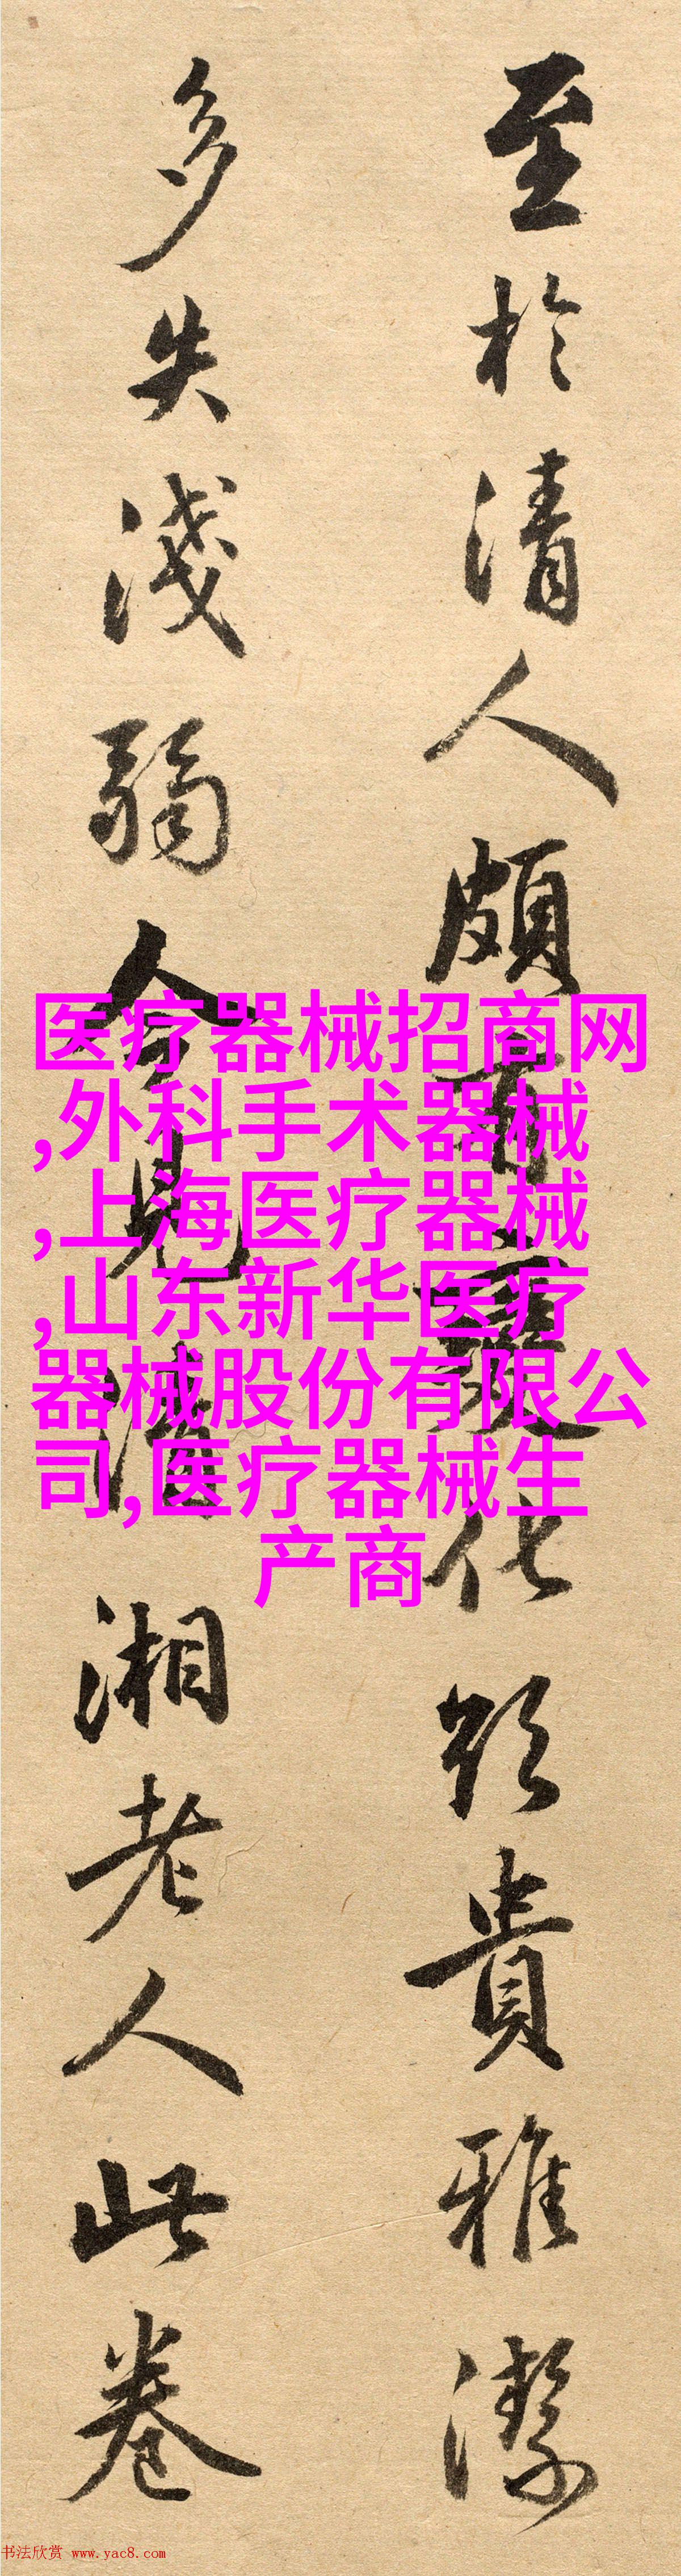 至於清人頗有變化能貴雅潔
多失淺弱今見清湘老人此卷
医疗器械招商网
,外科手术器械
,上海医疗器械
,山东新华医疗
器械股份有限公
司,医疗器械生
产商
书法欣赏 www.yac8.com